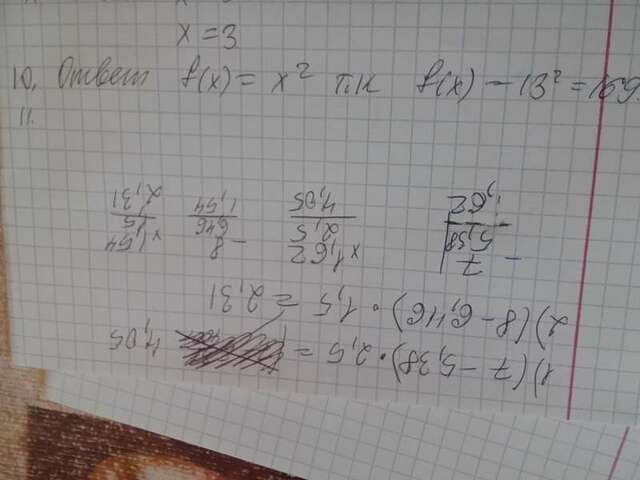 x = 3
10. Ответ f(x) = x² т.к f(x) - 13² = 169
11.
1) (7 - 5,38) · 2,5 = 4,05
2) (8 - 6,46) · 1,5 = 2,31
- 7
5,38
1,62
× 1,62
2,5
4,05
- 8
6,46
1,54
× 1,54
1,5
2,31